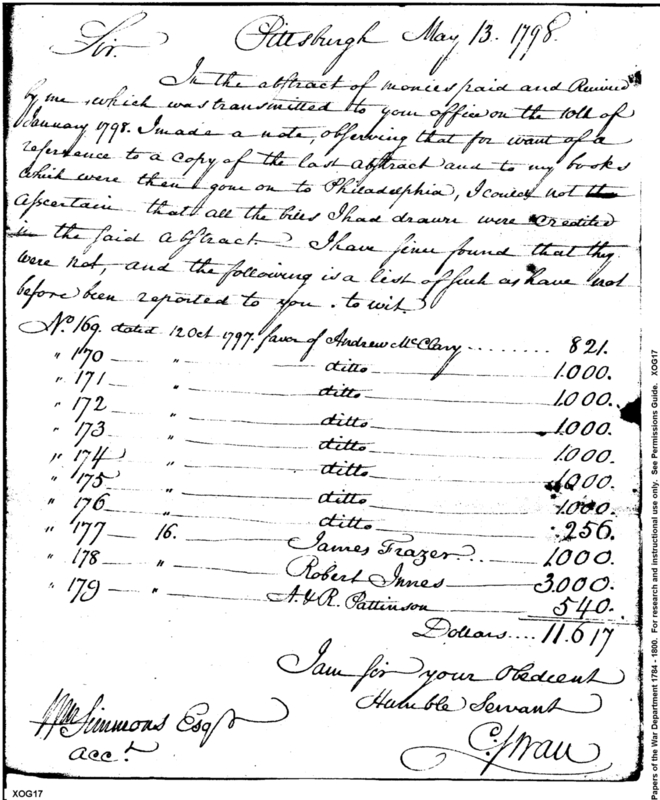 Pittsburgh May 13. 1798.
Sir.
In the abstract of monies paid and Received
by me, which was transmitted to your office on the 10th of
January 1798. I made a note, observing that for want of a
reference to a copy of the last abstract and to my books
which were then gone on to Philadelphia, I could not the
ascertain that all the bills I had drawn were credited
in the said abstract. I have since found that they
were not, and the following is a list of such as have not
before been reported to you. to wit.
No. 169. dated 12 Oct 1797. favor of Andrew McClary ......... 821.
" 170 " ditto 1.000.
" 171 " ditto 1.000.
" 172 " ditto 1.000.
" 173 " ditto 1.000.
" 174 " ditto 1.000.
" 175 " ditto 1.000.
" 176 " ditto 256.
" 177 16. James Frazer... 1.000.
" 178 " Robert Innes 3.000.
" 179 " A. & R. Pattinson 540.
Dollars.... 11.617
I am Sir your Obedient
Humble Servant
C. Swan
Wm Simmons Esqr
Acct.
Papers of the War Department 1784 - 1800. For research and instructional use only. See Permissions Guide. XOG17
XOG17